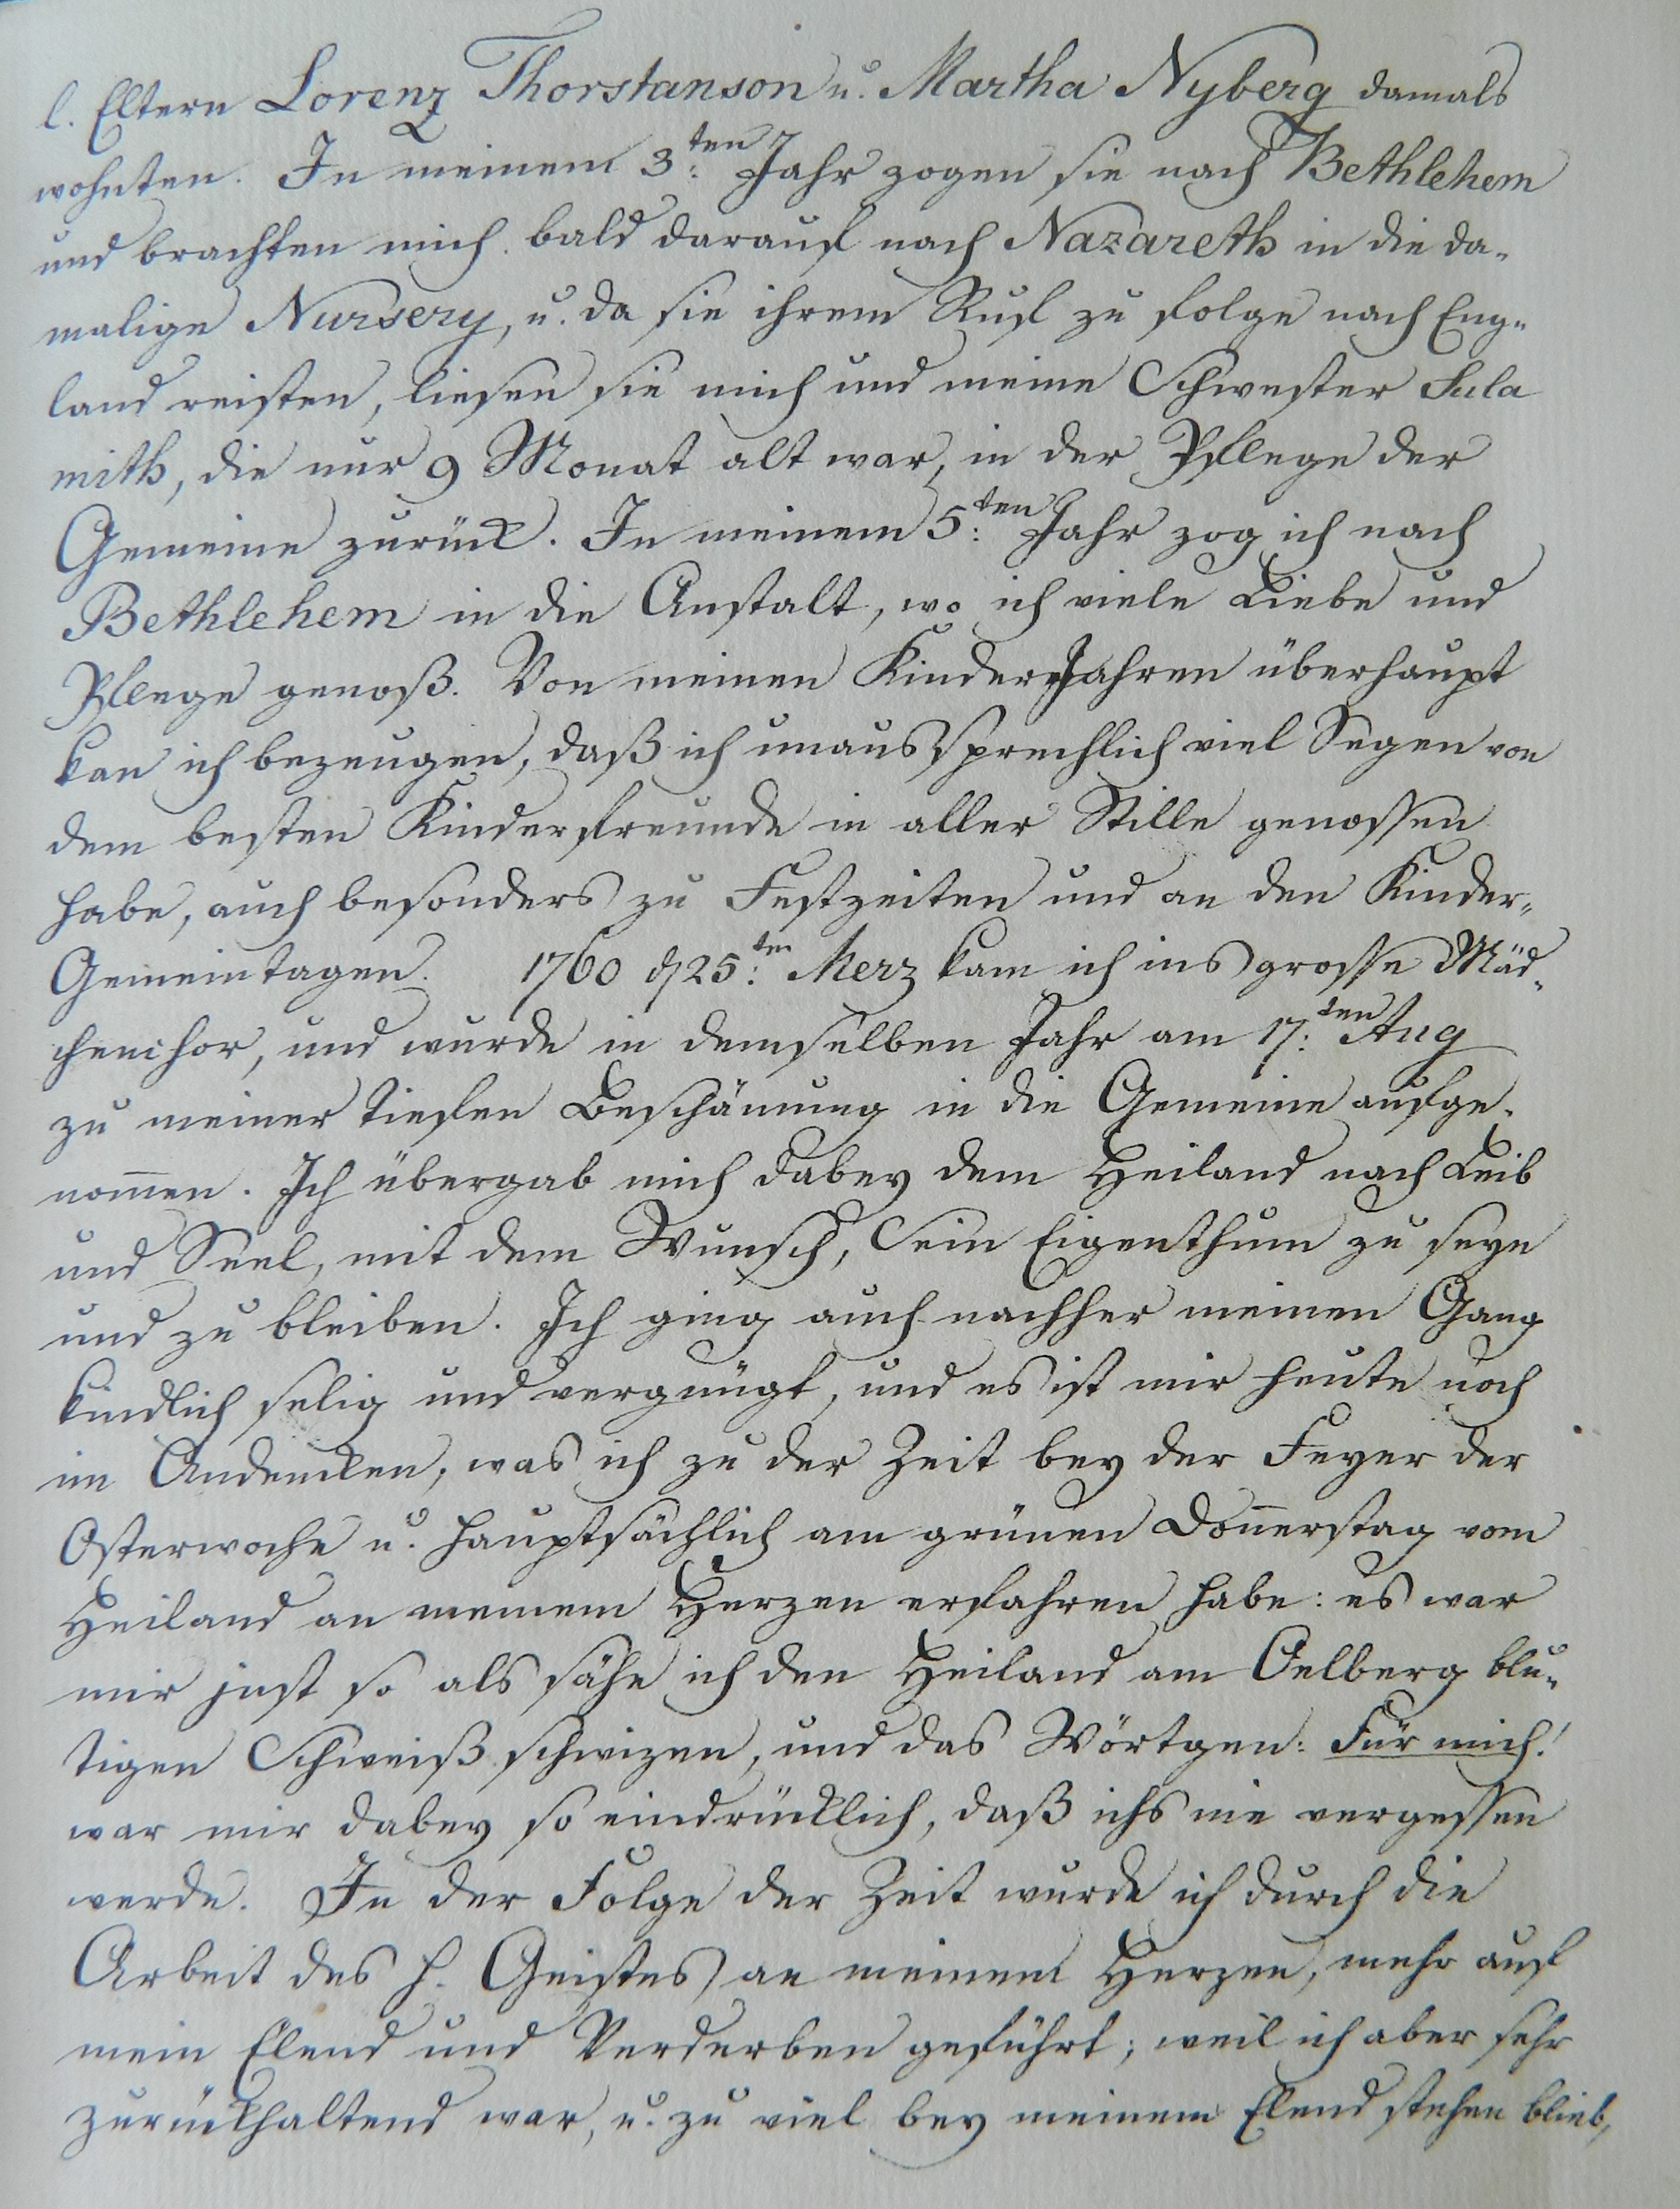 l. Eltern Lorenz Thorstanson u. Martha Nyberg damals
wohnten. In meinem 3:ten Jahr zogen sie nach Bethlehem
und brachten mich bald darauf nach Nazareth in die da-
malige Nursery, u. da sie ihrem Ruf zu folge nach Eng-
land reisten, liesen sie mich und meine Schwester Sula
mith, die nur 9 Monat alt war, in der Pflege der
Gemeine zurück. In meinem 5:ten Jahr zog ich nach
Bethlehem in die Anstalt, wo ich viele Liebe und
Pflege genoß. Von meinen Kinder Jahren überhaupt
kan ich bezeugen, daß ich unaussprechlich viel Segen von
dem besten Kinderfreunde in aller Stille genossen
habe, auch besonders zu Festzeiten und an den Kinder-
Gemeintagen. 1760 d 25:ten Merz kam ich ins grosse Mäd-
chenchor, und wurde in demselben Jahr am 17:ten Aug
zu meiner tiefen Beschämung in die Gemeine aufge-
nom̄en. Ich übergab mich dabey dem Heiland nach Leib
und Seel, mit dem Wunsch, Sein Eigenthum zu seyn
und zu bleiben. Ich ging auch nachher meinen Gang
kindlich selig und vergnügt, und es ist mir heute noch
im Andencken, was ich zu der Zeit bey der Feyer der
Osterwoche u. hauptsächlich am grünen Don̄erstag vom
Heiland an meinem Herzen erfahren habe: es war
mir just so als sähe ich den Heiland am Oelberg blu-
tigen Schweiß schwizen, und das Wörtgen: Für mich!
war mir dabey so eindrücklich, daß ichs nie vergessen
werde. In der Folge der Zeit wurde ich durch die
Arbeit des h. Geistes an meinem Herzen, mehr auf
mein Elend und Verderben geführt; weil ich aber sehr
zurückhaltend war, u. zu viel bey meinem Elend stehen blieb,